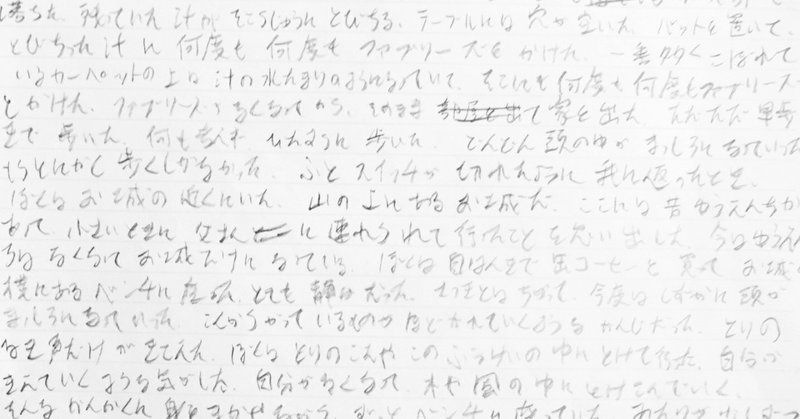 落ちた。残っていた汁がそこらじゅうにとびちる。テーブルには穴が空いた。バットを置いて、
とびちった汁に何度も何度もファブリーズをかけた。一番多くこぼれて
いるカーペットの上は汁の水たまりのようになっていて、そこにも何度も何度もファブリーズ
をかけた。ファブリーズがなくなってから、そのまま家を出た。ただただ
まで歩いた。何も考えず、ひたすらに歩いた。どんどん頭の中がまっしろになっていった
とにかく歩くしかなかった。ふとスイッチが切れたように我に返ったとき、
ぼくはお城の近くにいた。山の上にあるお城だ。ここには昔ゆうえんちが
あって、小さいときに父さんに連れられて行ったことを思い出した。今はゆうえん
ちはなくなってお城だけになっている。ぼくは自はんきで缶コーヒーを買って、お城の
横にあるベンチに座った。とても静かだった。さっきとはちがって、今度はしずかに頭が
まっしろになっていった。こんがらがっているものがほどかれていくようなかんじだった。とりの
なき声だけがきこえた。ぼくはとりのこえやこのふうけいの中にとけて行った。自分が
きえていくような気がした。自分がなくなって、木や風の中にとけこんでいく。
そんなかんかくに身をまかせながら、ずっとベンチに座っていた。